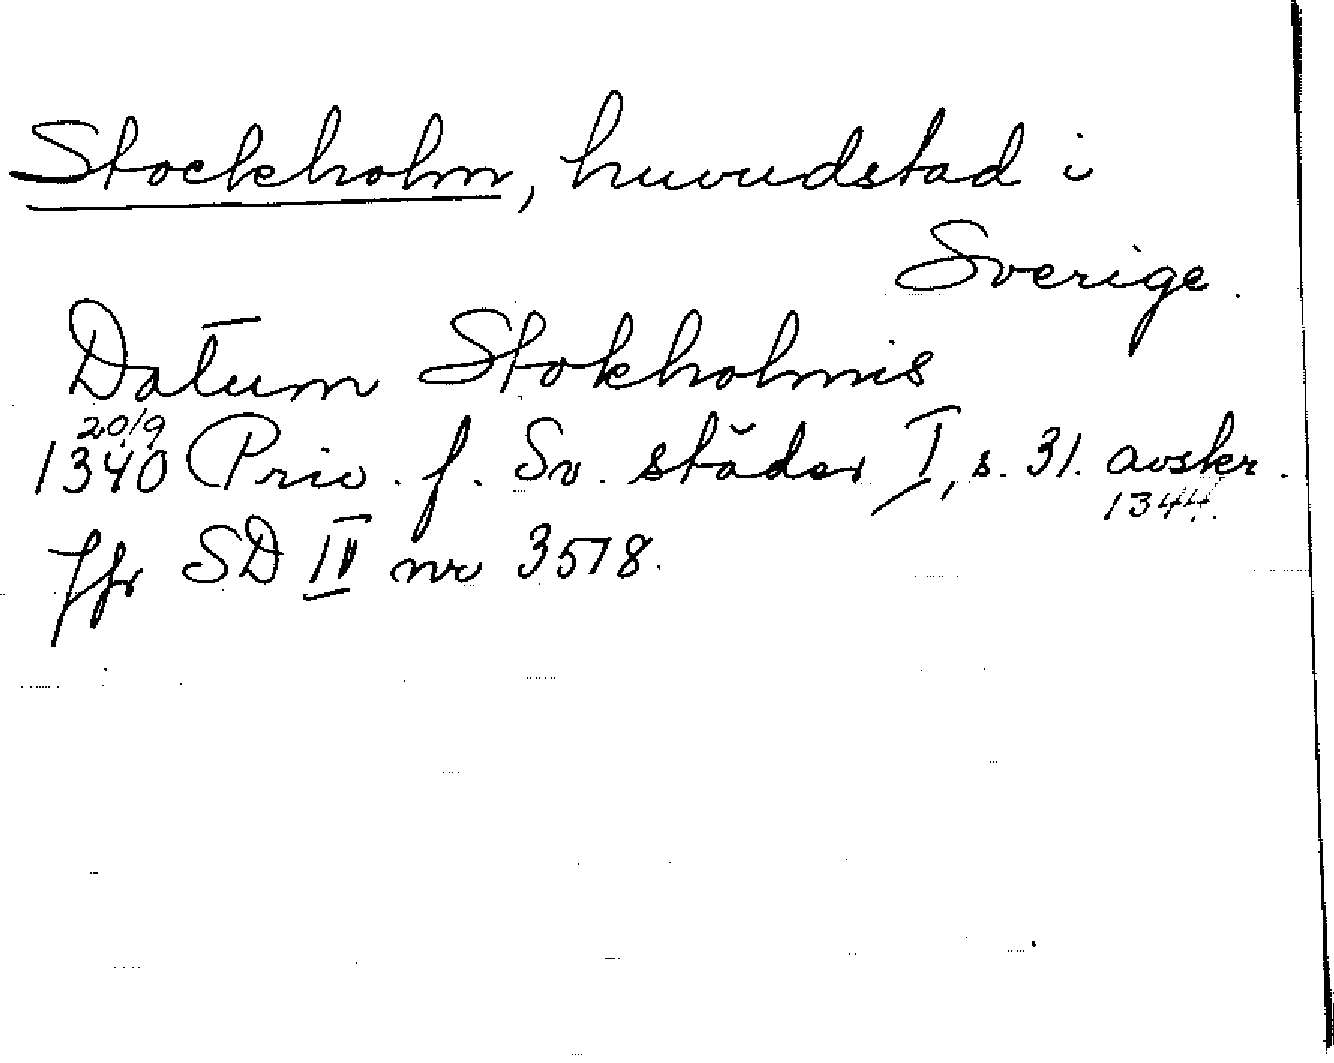 Stockholm, huvudstad i
Sverige.
Datum Stokholmis
20/9
1340 Priv. f. Sv. städer I, s. 31. avskr.
1344.
Jfr SD IV nr 3518.